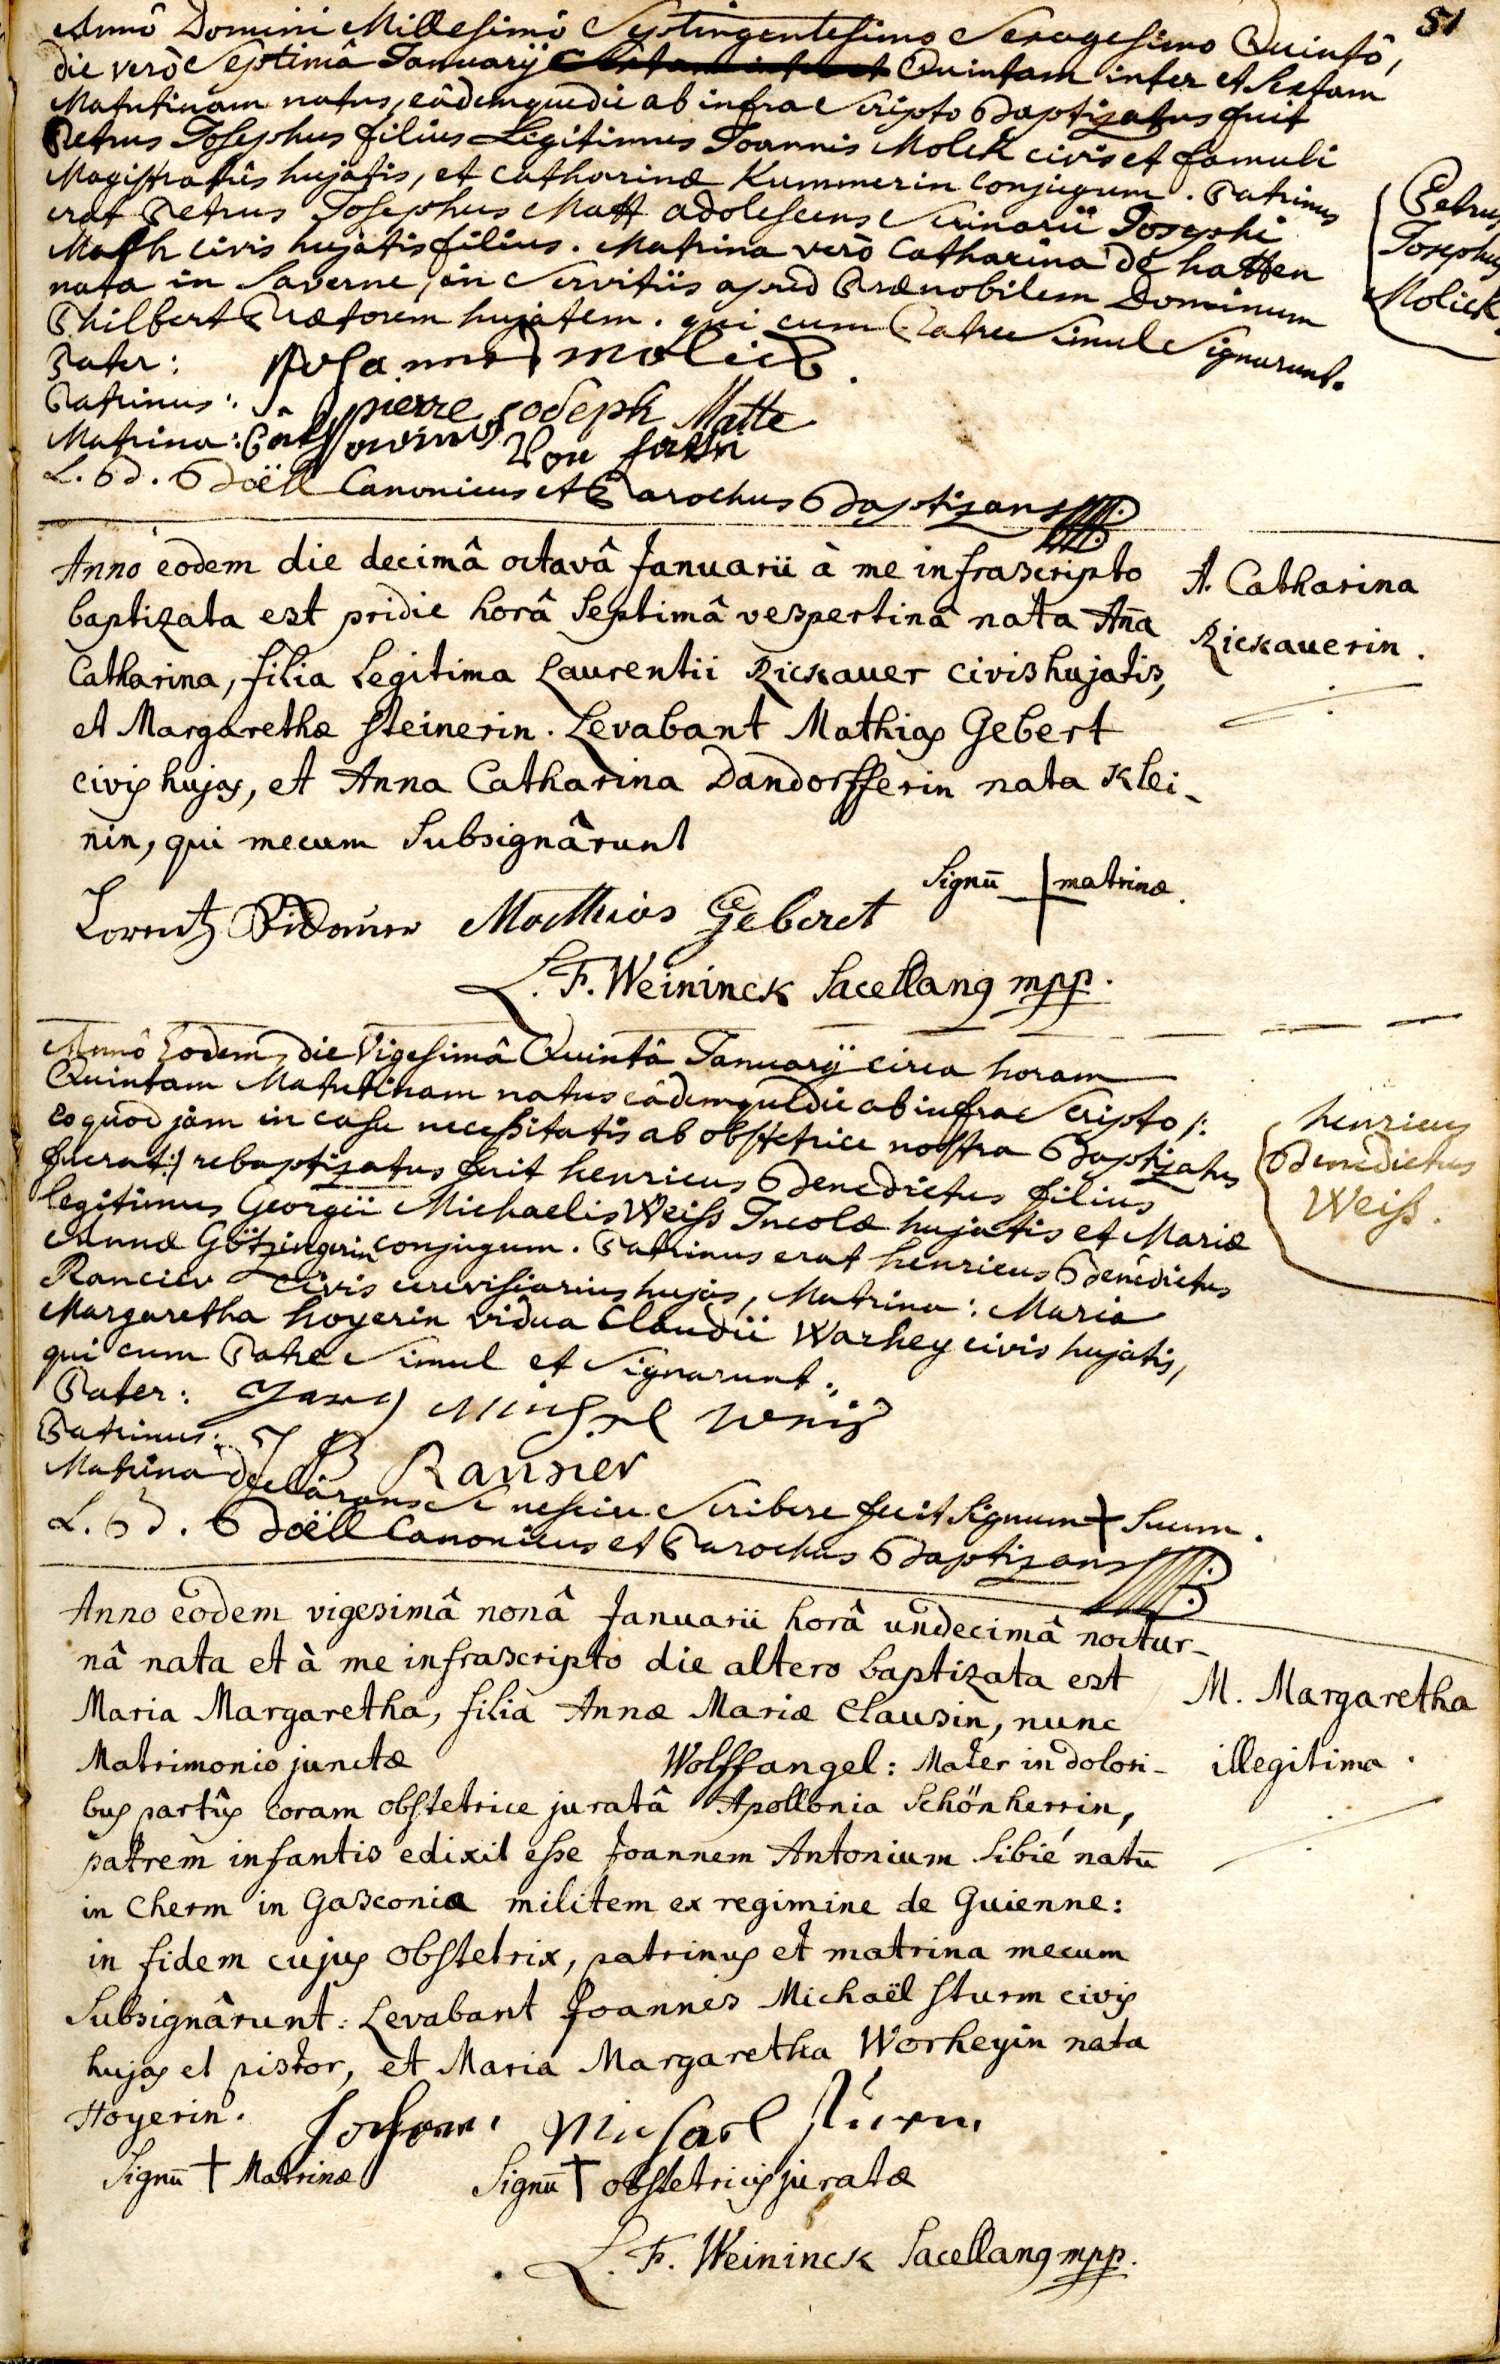 51
Annô Domini Millesimô Septingentesimo Sexagesimo Quintô,
die verò Septimâ Januarÿ Quintam inter et Sextam
Matutinam natus, eâdemque die ab infra Scripto Baptizatus fuit
Petrus Josephus filius Legitimus Joannis Molck civis et famuli
Magistratûs hujatis, et Catharinæ Kummerin conjugum. Patrinus
erat Petrus Josephus Matt adolescens Scrinarii Josephi
Math civis hujatis filius. Matrina verò Catharina de hatten
nata in Saverne, in Servitiis apud Prænobilem Dominum
Philbert Prætorem hujatem. qui cum Patre Simul Signarunt.
Petrus
Josephus
Molick.
Pater: Johannes molick.
Patrinus: pierre joseph Matte
Matrina: Von
L. B. Boëll Canonicus et Parochus Baptizans
Anno eodem die decimâ octavâ Januarii à me infrascripto
baptizata est pridie horâ Septimâ vespertinâ nata Ana
Catharina, filia legitima Laurentii Rickauer civis hujatis,
et Margarethæ Steinerin. Levabant Mathias Gebert
civis hujas, et Anna Catharina Dandorfferin nata Klei-
nin, qui mecum Subsignârunt
A. Catharina
Rickauerin.
Signū + matrinæ.
Lorentz Rickauer Matthias Geberet
L. F. Weininck Sacellanus mpp.
Annô Eodem, die Vigesimâ Quintâ Januarÿ circa horam
Quintam Matutinam natus eâdemque die ab infra Scripto /:
eo quod jam in casu necessitatis ab obstetrice nostra Baptizatus
fuerat:/ rebaptizatus fuit henricus Benedictus filius
legitimus Georgii Michaelis Weiss Incolæ hujatis et Mariæ
Annæ Götzingerin conjugum. Patrinus erat henricus Benedictus
Rancier Civis cerevisiarius hujas, Matrina: Maria
Margaretha hoyerin vidua Claudii Warhey civis hujatis,
qui cum Patre Simul et Signarunt.
henricus
Benedictus
Weiss.
Pater: Jarg Michel weiss
Patrinus: H B Ransier
Matrina declarans Se nescire Scribere fecit Signum + Suum.
L. B. Boëll Canonicus et Parochus Baptizans
Anno eodem vigesimâ nonâ Januarii horâ undecimâ noctur-
nâ nata et à me infrascripto die altero baptizata est
Maria Margaretha, filia Annæ Mariæ Clausin, nunc
Matrimonio junctæ Wolffangel: Mater in dolori-
bus partûs coram obstetrice juratâ Apollonia Schönherrin,
patrem infantis edixit esse Joannem Antonium Sibié natū
in Cherm in Gasconia militem ex regimine de Guienne:
in fidem cujus obstetrix, patrinus et matrina mecum
Subsignârunt: Levabant Joannes Michaël Sturm civis
hujas et pistor, et Maria Margaretha Worheyin nata
Hoyerin.
M. Margaretha
illegitima.
Johann Michael Sturm
Signū + Matrinæ Signū + obstetricis juratæ
L. F. Weininck Sacellanus mpp.